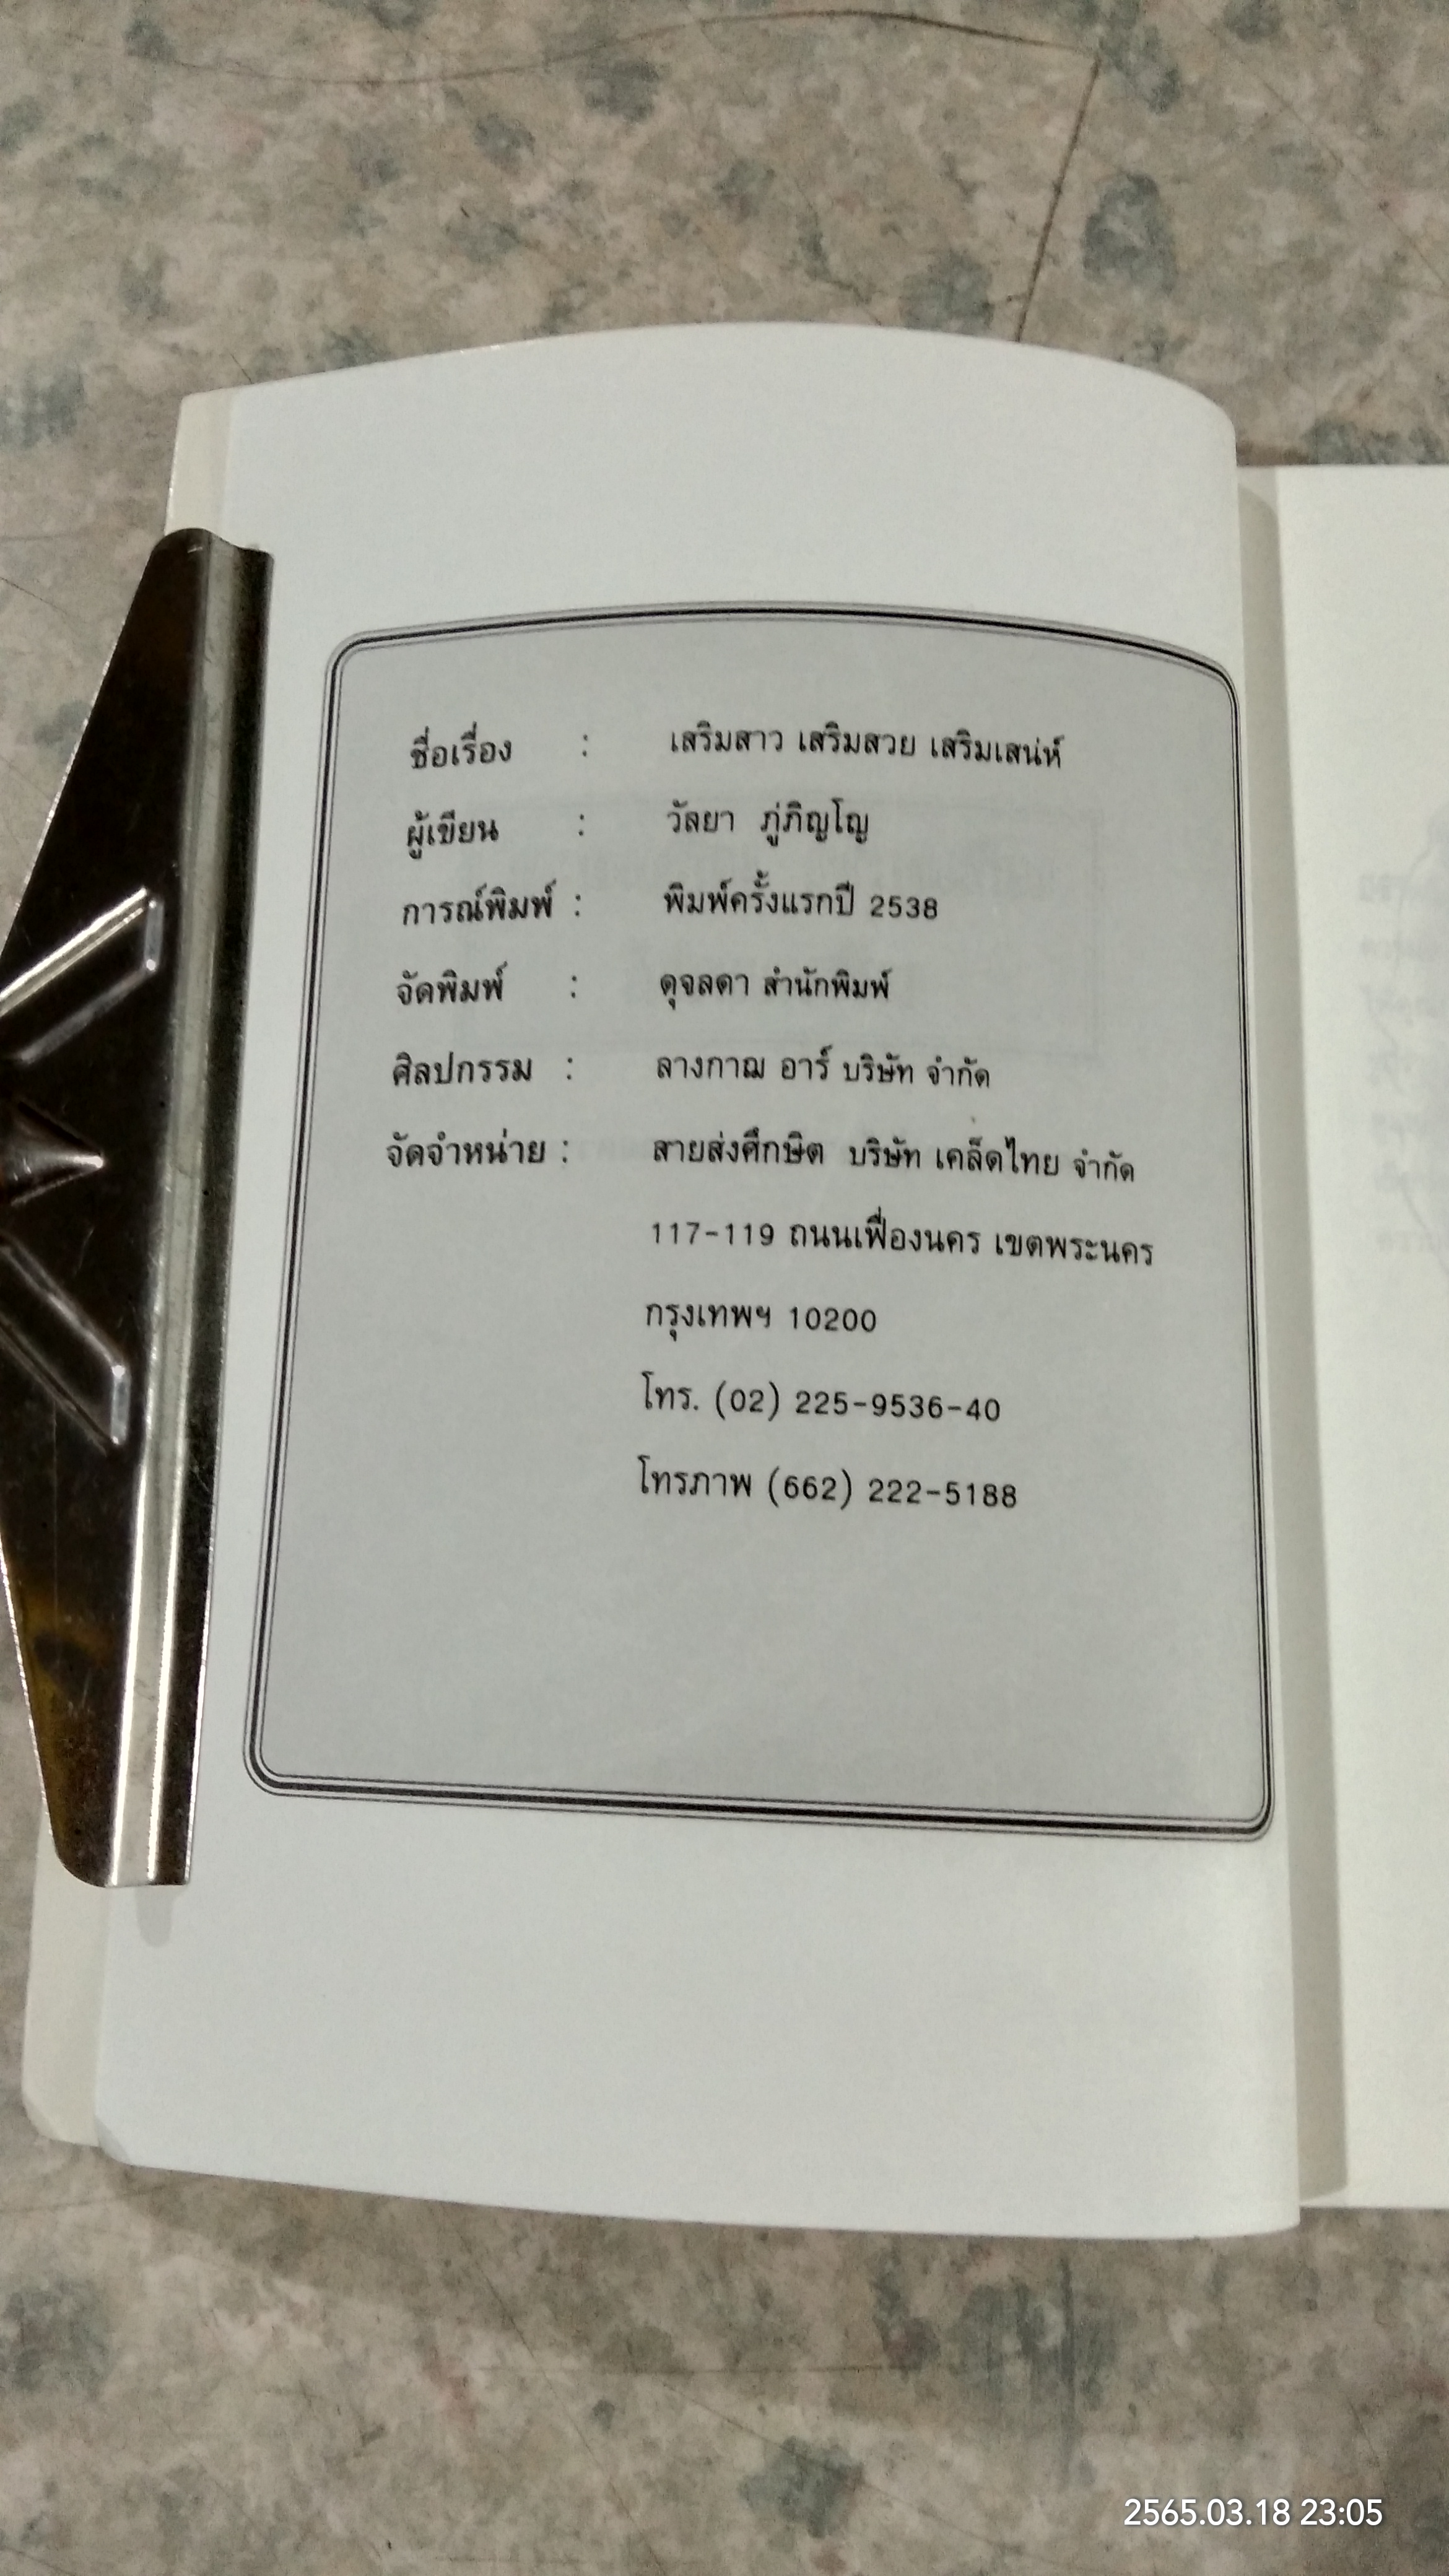 ชื่อเรื่อง : เสริมสาว เสริมสวย เสริมเสน่ห์
ผู้เขียน : วัลยา ภู่ภิญโญ
การณ์พิมพ์ : พิมพ์ครั้งแรกปี 2538
จัดพิมพ์ : ดุจลดา สำนักพิมพ์
ศิลปกรรม : ลางกาฌ อาร์ บริษัท จำกัด
จัดจำหน่าย : สายส่งศึกษิต บริษัท เคล็ดไทย จำกัด
117-119 ถนนเฟื่องนคร เขตพระนคร
กรุงเทพฯ 10200
โทร. (02) 225-9536-40
โทรภาพ (662) 222-5188
2565.03.18 23:05